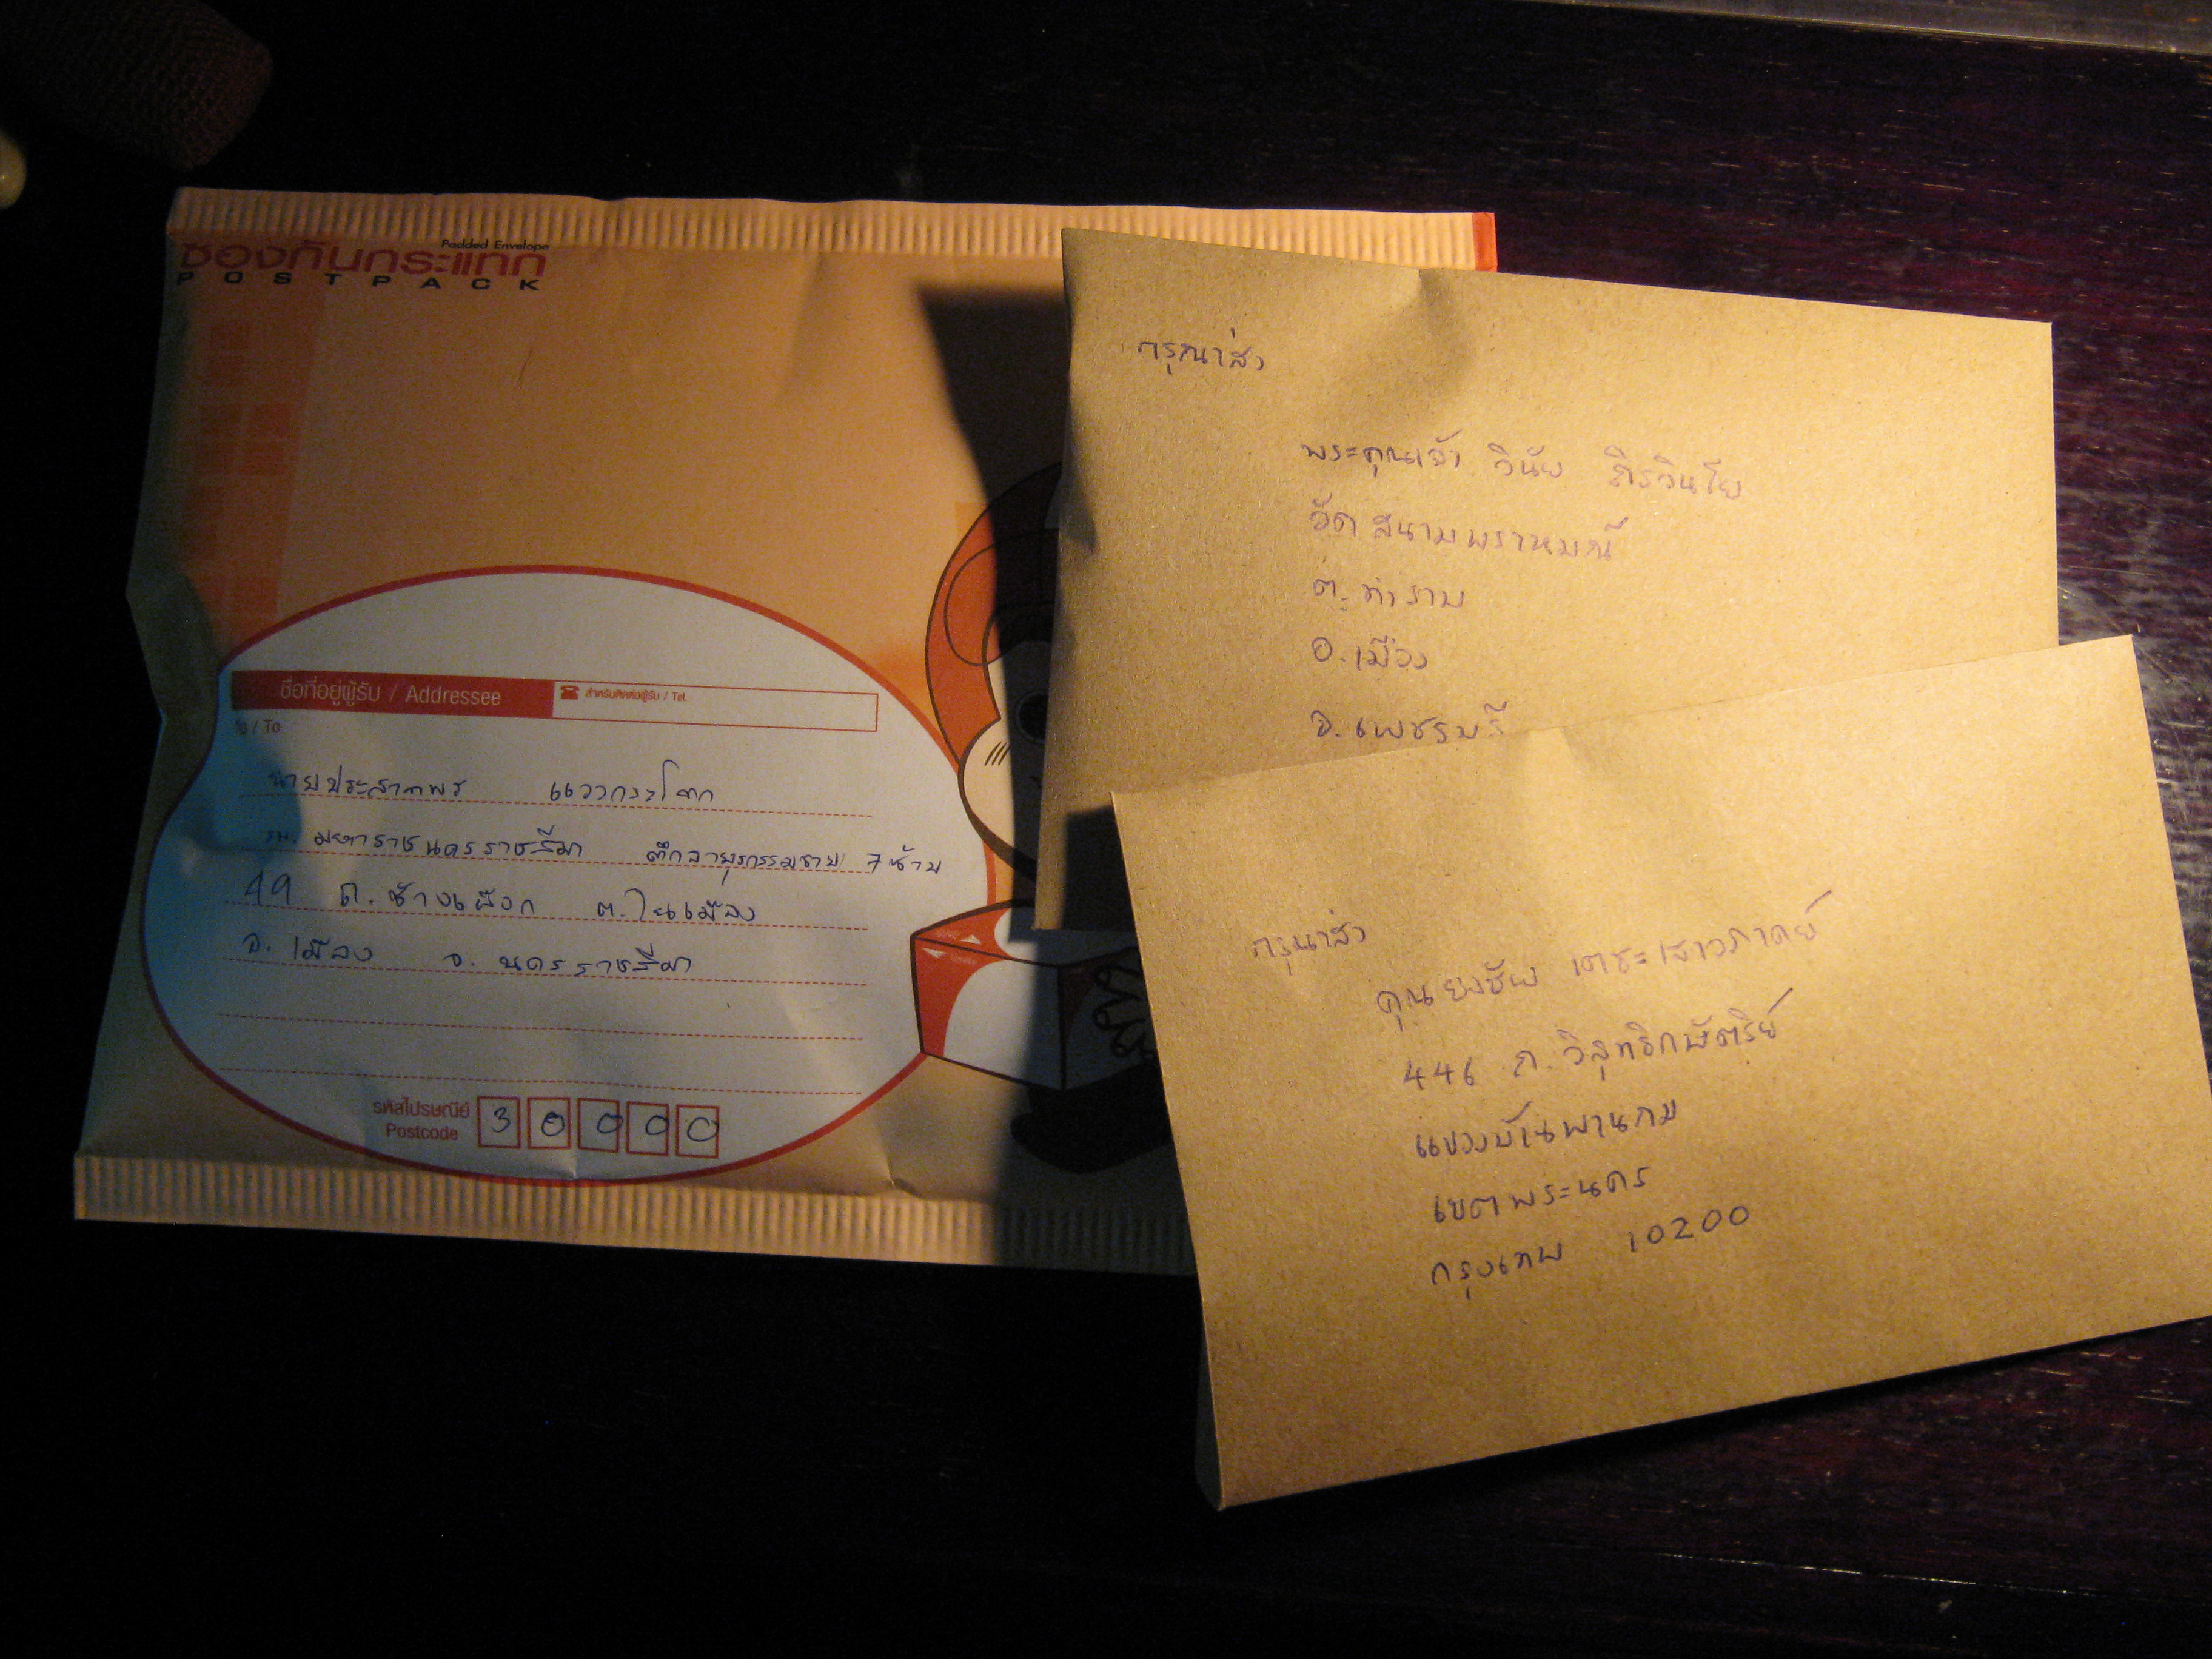 Padded Envelope
ซองกันกระแทก
POSTPACK
ชื่อที่อยู่ผู้รับ / Addressee
สำหรับติดต่อผู้รับ / Tel.
ถึง / To
นายประสาทพร แววกระโทก
รพ. มหาราชนครราชสีมา ตึกอายุรกรรมชาย 7 ซ้าย
49 ถ. ช้างเผือก ต. ในเมือง
อ. เมือง จ. นครราชสีมา
รหัสไปรษณีย์
Postcode
30000
กรุณาส่ง
พระคุณเจ้า วินัย ถิรวินโย
วัดสนามพราหมณ์
ต. ท่าราบ
อ. เมือง
จ. เพชรบุรี
กรุณาส่ง
คุณ ยงชัย เตชะเสาวภาคย์
446 ถ. วิสุทธิกษัตริย์
แขวงบ้านพานถม
เขตพระนคร
กรุงเทพ 10200